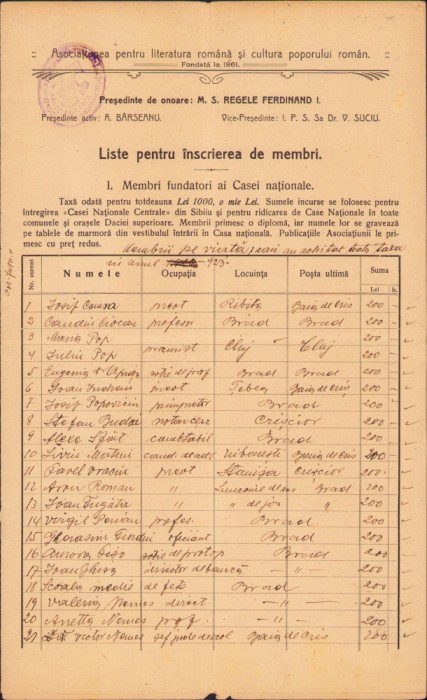 Asociațiunea pentru literatura română și cultura poporului român.
Fondată la 1861.
Președinte de onoare: M. S. REGELE FERDINAND I.
Președinte activ: A. BÂRSEANU. Vice-Președinte: I. P. S. Sa Dr. V. SUCIU.
Liste pentru înscrierea de membri.
I. Membri fundatori ai Casei naționale.
Taxă odată pentru totdeauna Lei 1000, o mie Lei. Sumele incurse se folosesc pentru
întregirea «Casei Naționale Centrale» din Sibiiu și pentru ridicarea de Case Naționale în toate
comunele și orașele Daciei superioare. Membrii primesc o diplomă, iar numele lor se gravează
pe tablele de marmoră din vestibulul intrării în Casa națională. Publicațiile Asociațiunii le pri-
mesc cu preț redus.
Membrii pe viață, cari au achitat toată taxa
în anul 923
Nr. curent Numele Ocupația Locuința Poșta ultimă Suma
Lei b.
1 Iosif preot Ribița Baia de Criș 200
2 profesor Brad Brad 200
3 Maria Pop 200
4 Iuliu Pop Cluj Cluj 200
5 Eugenia soție de prof Brad Brad 200
6 preot Tebea Baia de Criș 200
7 Iosif Popoviciu Brad 200
8 Ștefan Budai notar Crișcior 200
9 contabil Brad 200
10 Liviu Baia de Criș 200
11 Pavel preot Stanija Crișcior 200
12 Aron Roman " Brad 200
13 Ioan " " de jos " 200
14 Virgil Roman profes. Brad 200
15 oficiant Brad 200
16 Aurora soție de protop Brad 200
17 Ioan Ghișa director de bancă - " - 200
18 Școala medie de fete Brad 200
19 Valeriu Nemeș - " - 200
20 Anetta Nemeș prof. - " - 200
21 Victor Nemeș Baia de Criș 200